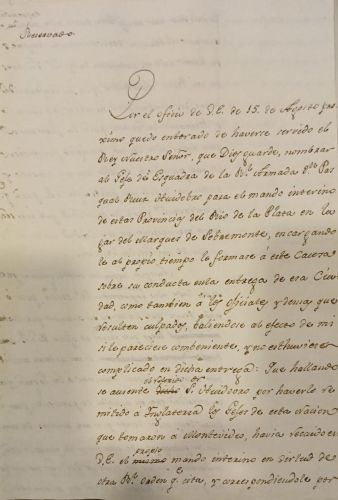 Reservado
Por el oficio de V.E. de 15. de Agosto pro-
ximo quedo enterado de haverse servido el
Rey Nuestro Señor, que Dios guarde, nombrar
al Gefe de Esquadra de la Rl. Armada Dn. Pas
qual Ruiz Huidobro para el mando interino
de estas Provincias del Rio de la Plata en lu
gar del Marques de Sobremonte, encargando
le al propio tiempo le formase á este Causa
sobre su conducta en la entrega de esa Ciu
dad, como tambien á los oficiales y demas que
resulten culpados, valiendose al efecto de mi
si le pareciese combeniente, y no esthuviese
complicado en dicha entrega: Que hallando
se ausente el referido Sr. Huidobro por haverlo re
mitido á Inglaterra los Gefes de esta Nacion
que tomaron á Montevideo, havia recaido en
V.E. el propio mando interino en virtud de
otra Rl. orden qe. cita, y correspondiendole por